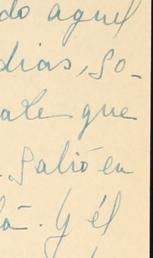 do aquel
dias, so-
ate que
. Salió en
lá. Y él